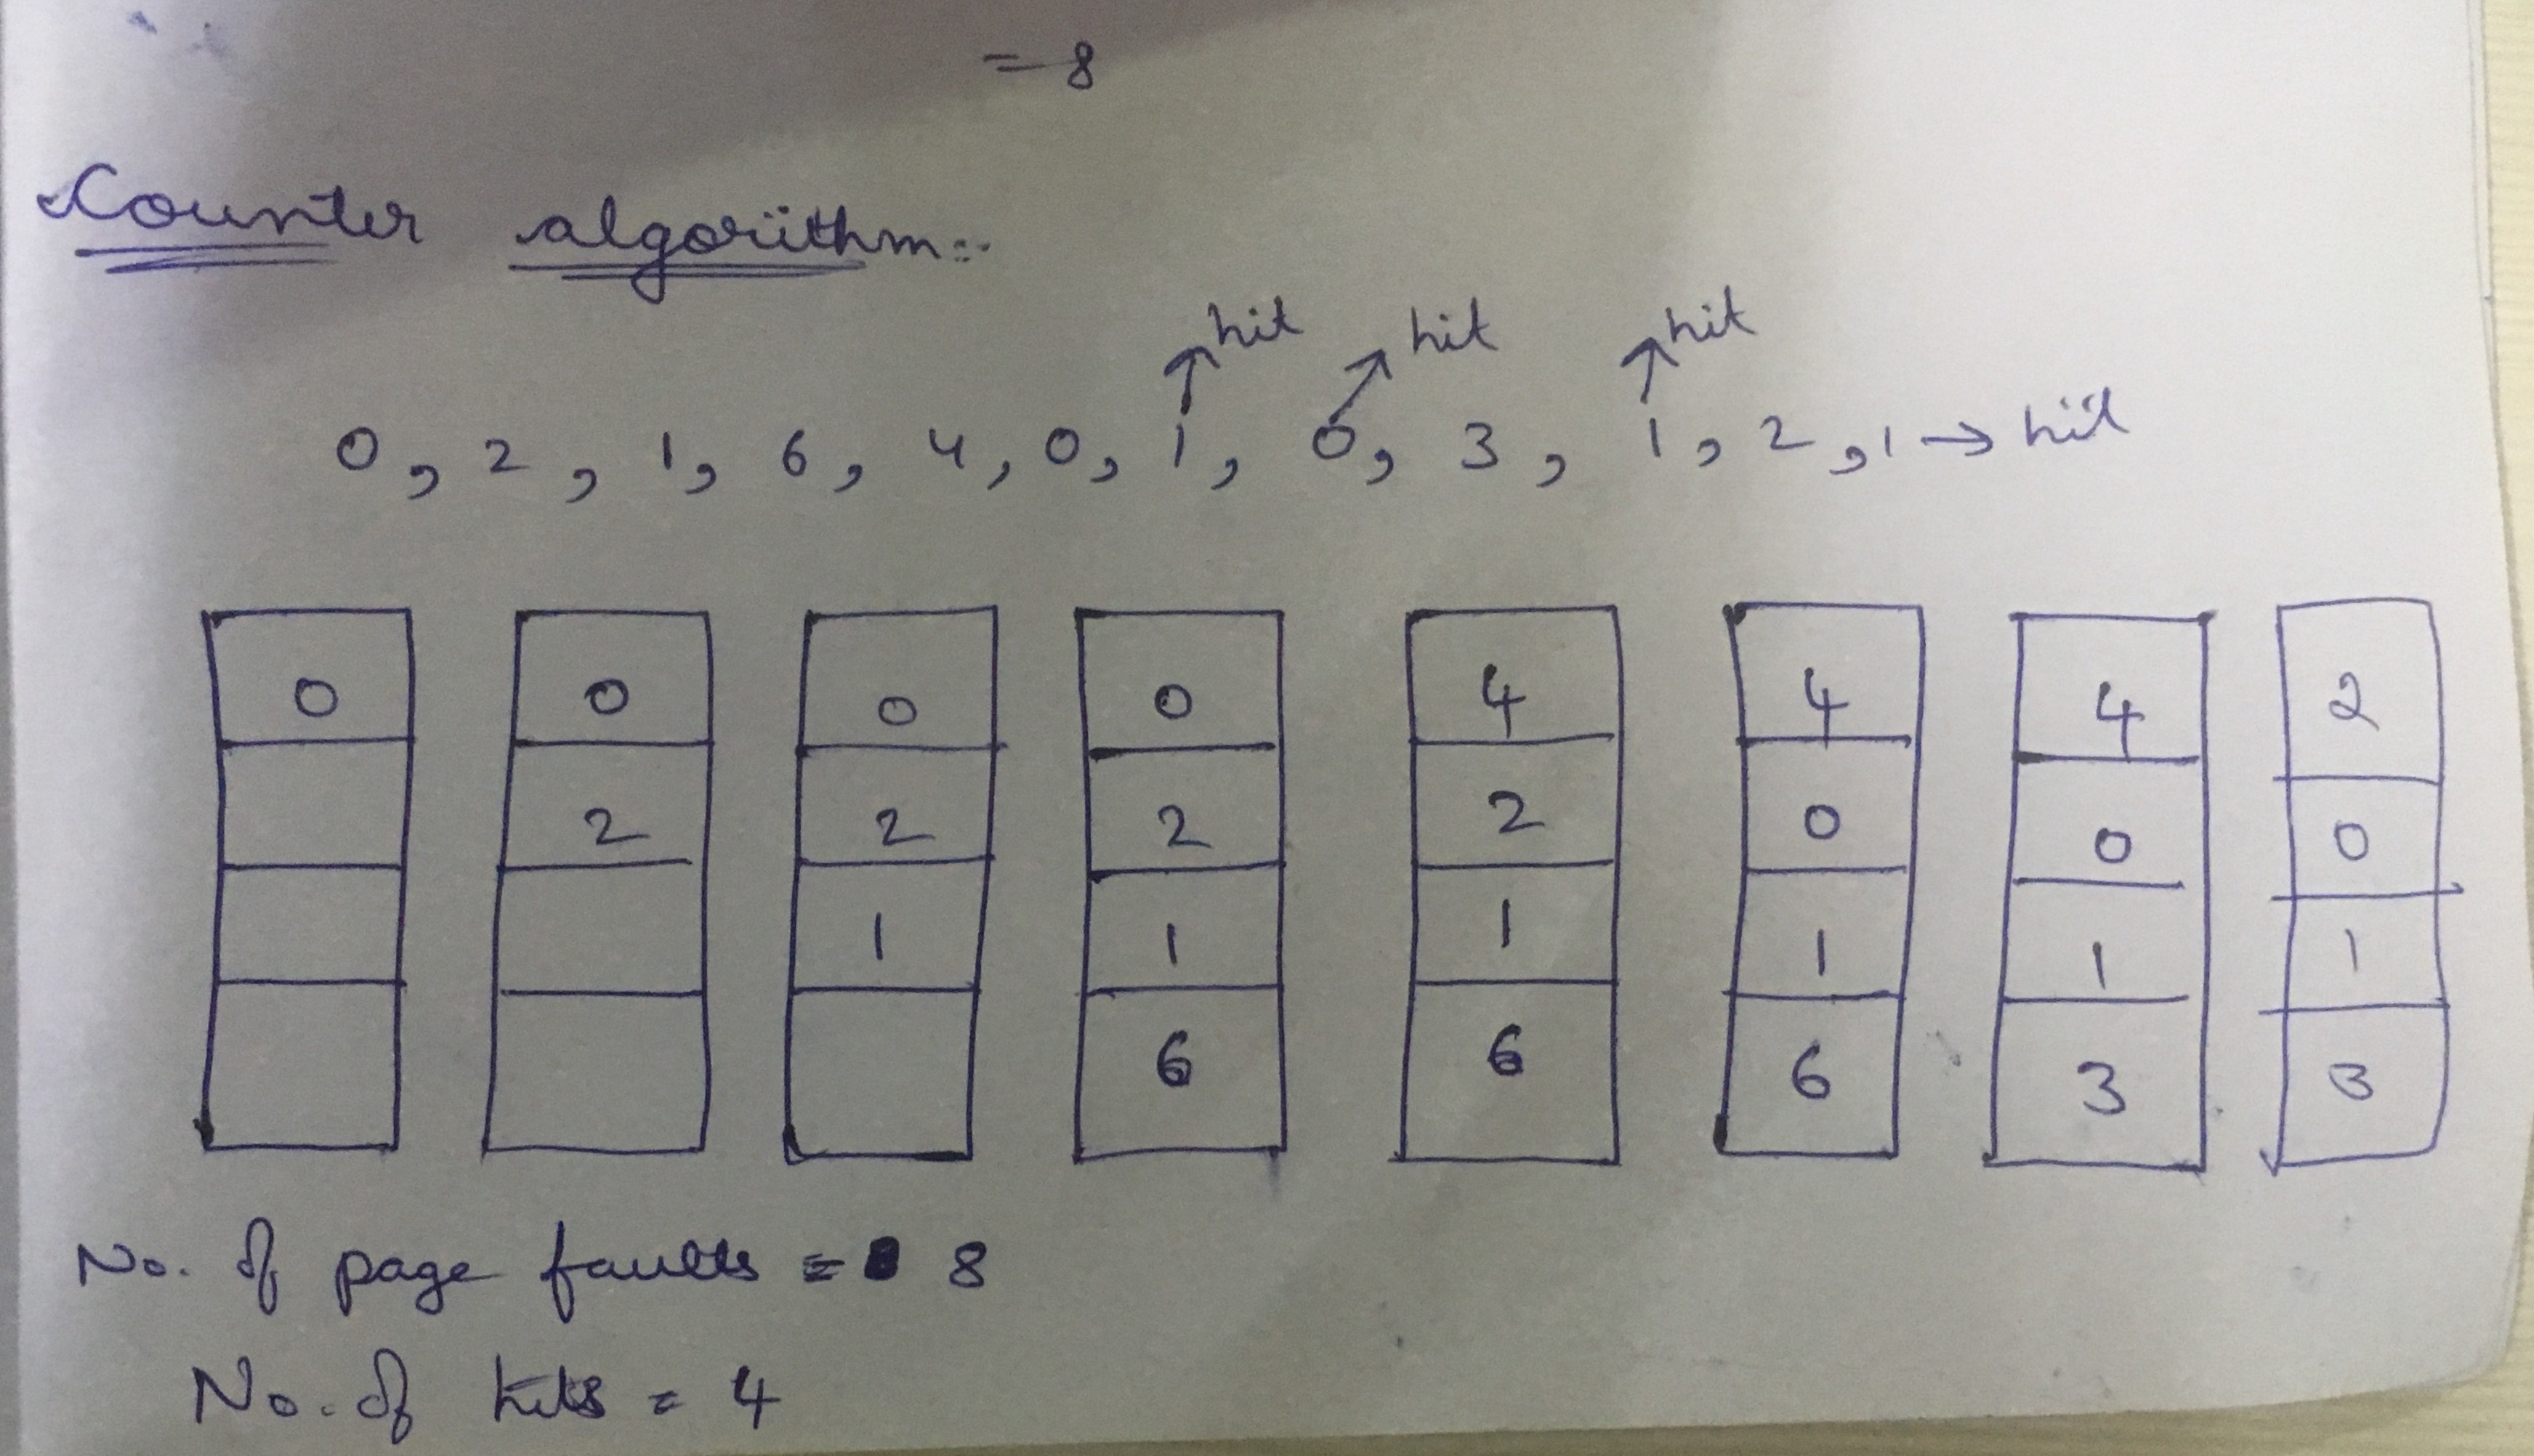 = 8
Counter algorithm:-
hit hit hit
0, 2, 1, 6, 4, 0, 1, 0, 3, 1, 2, 1 → hit
0 0 0 0 4 4 4 2
2 2 2 2 0 0 0
1 1 1 1 1 1
6 6 6 3 3
No. of page faults = 8
No. of hits = 4